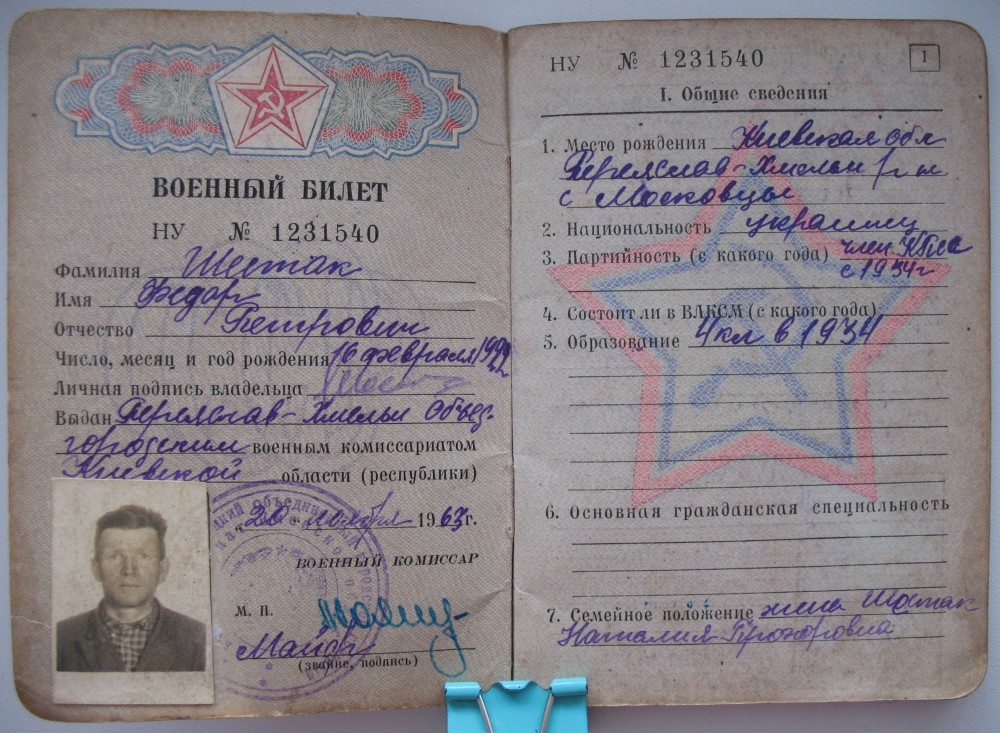 ВОЕННЫЙ БИЛЕТ
НУ № 1231540
Фамилия Шостак
Имя Федор
Отчество Петрович
Число, месяц и год рождения 16 февраля 1922
Личная подпись владельца
Выдан Переяслав-Хмельн Объед.
городским военным комиссариатом
Киевской области (республики)
"20" ноября 1963 г.
ВОЕННЫЙ КОМИССАР
М. П.
Майор
(звание, подпись)
НУ № 1231540
1
I. Общие сведения
1. Место рождения Киевская обл
Переяслав-Хмельн р-н
с Московцы
2. Национальность украинец
3. Партийность (с какого года) член КПСС
с 1954 г
4. Состоит ли в ВЛКСМ (с какого года)
5. Образование 4 кл в 1934
6. Основная гражданская специальность
7. Семейное положение жена Шостак
Наталия Прохоровна